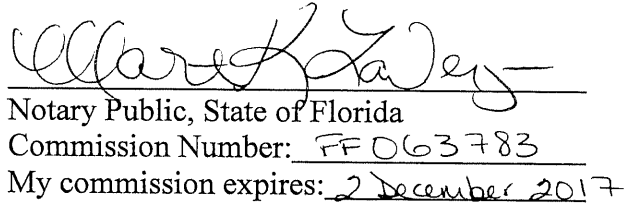 Mark K LaVey
Notary Public, State of Florida
Commission Number: FF 063783
My commission expires: 2 December 2017